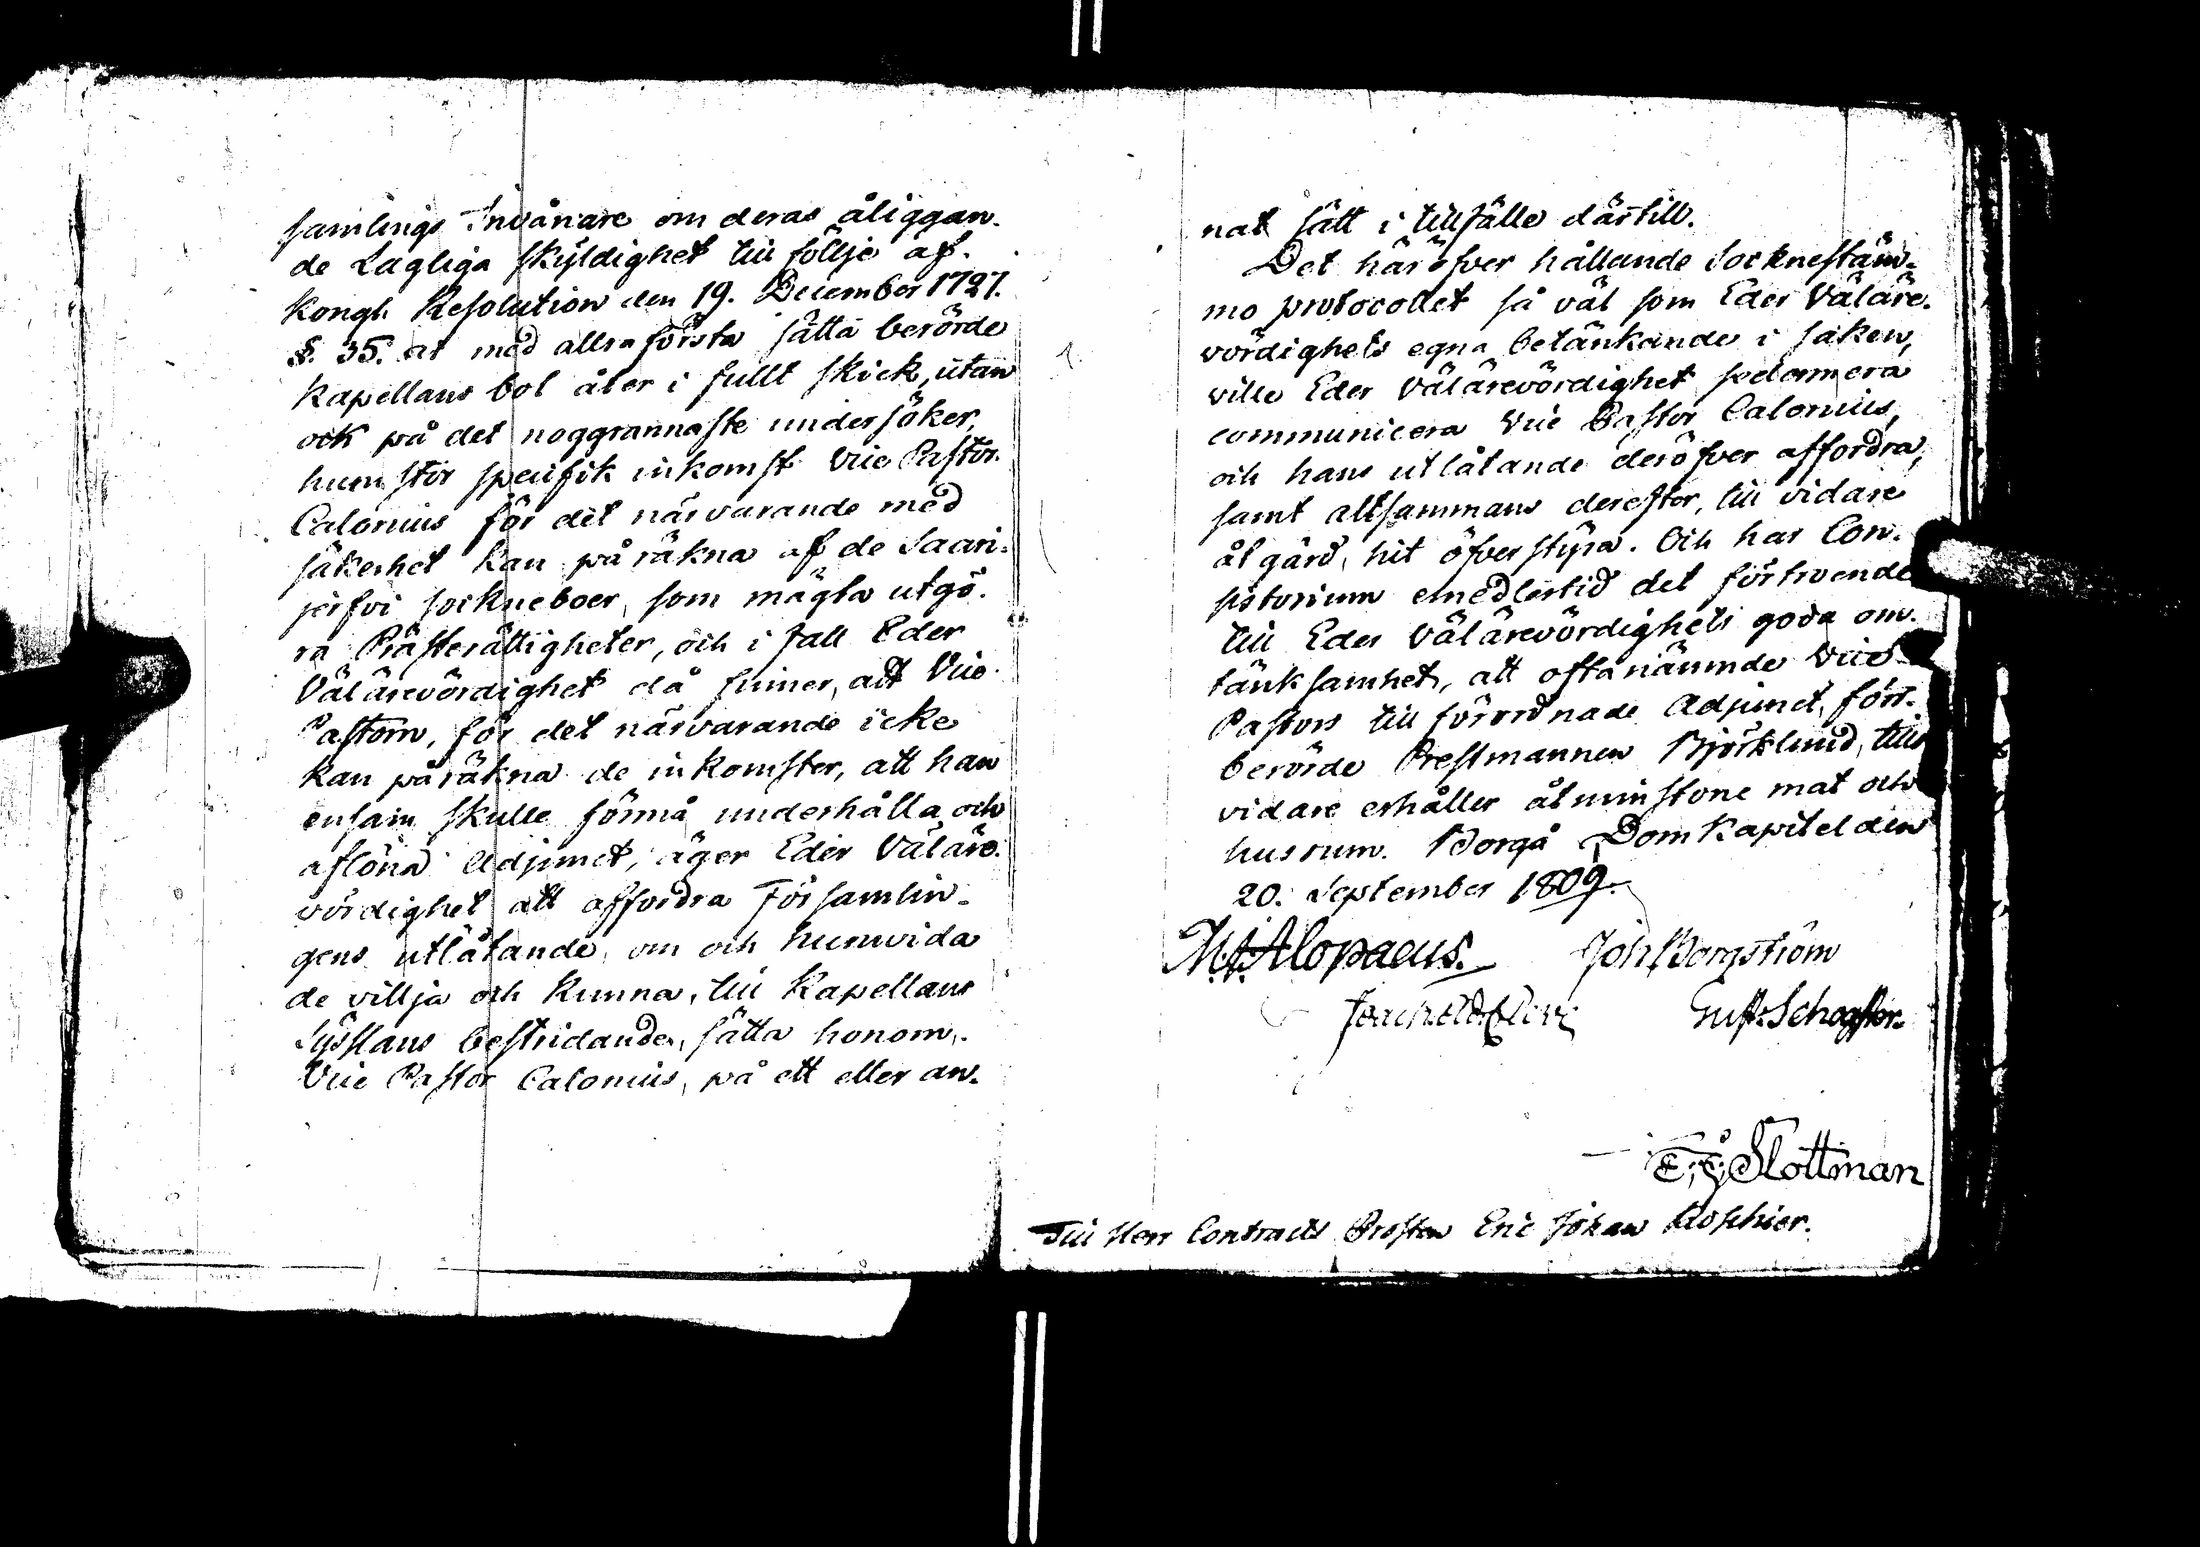 samlings Invånare om deras åliggan-
de Lagliga skyldighet till föllje af
Kongl. Resolution den 19. December 1727.
§. 35. at med allraförsta sätta berörde
Kapellans bol åter i fullt skick, utan
ock på det noggrannaste undersöker,
hum stor specifik inkomst Vice Pastor
Calonius för det närvarande med
säkerhet kan påräkna af de Saari-
jerfvi sockneboer, som mägta utgö-
ra Prästerättigheter, och i fall Eder
Välärevördighet då finner, att Vice
Pastorn, för det närvarande icke
kan påräkna de inkomster, att han
ensam skulle förmå underhålla och
aflöna Adjunct, äger Eder Väläre-
vördighet att affordra Församlin-
gens utlåtande, om och hurwida
de villja och kunna, till Kapellans
Sysslans bestridande, sätta honom,
Vice Pastor Calonius, på ett eller an-
nat sätt i tillfälle därtill.
Det häröfver hållande Socknestäm-
mo protocollet så väl som Eder Väläre-
vördighets egna betänkande i saken,
ville Eder Välärevördighet sedermera
communicera Vice Pastor Calonius,
och hans utlåtande deröfver affordra,
samt altsammans derefter, till vidare
åtgärd, hit öfverstyra. Och har Con-
sistorium emedlertid det förtroende
till Eder Välärevördighets goda om-
tänksamhet, att oftanämnde Vice
Pastors till förordnade Adjunct, förr-
berörde Prestmannen Björklund, tills
vidare erhåller åtminstone mat och
husrum. Borgå Domkapitel den
20. September 1809.
M. Alopaeus. Joh. Borgström
Gust. Schogster.
Slottman
Till Herr Contracts Prosten Eric Johan